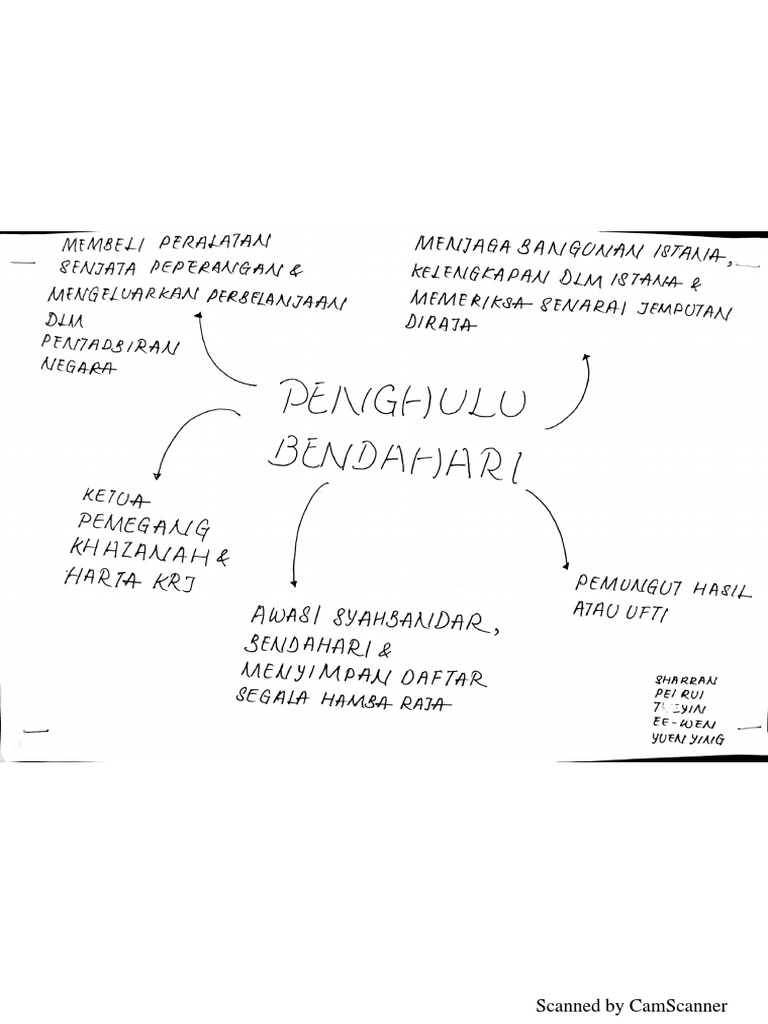 MEMBELI PERALATAN
SENJATA PEPERANGAN &
MENGELUARKAN PERBELANJAAN
DLM
PENTADBIRAN
NEGARA
MENJAGA BANGUNAN ISTANA,
KELENGKAPAN DLM ISTANA &
MEMERIKSA SENARAI JEMPUTAN
DIRAJA
PENGHULU
BENDAHARI
KETUA
PEMEGANG
KHAZANAH &
HARTA KRJ
AWASI SYAHBANDAR,
BENDAHARI &
MENYIMPAN DAFTAR
SEGALA HAMBA RAJA
PEMUNGUT HASIL
ATAU UFTI
SHARRAN
PEI RUI
EE-WEN
YUEN YING
Scanned by CamScanner